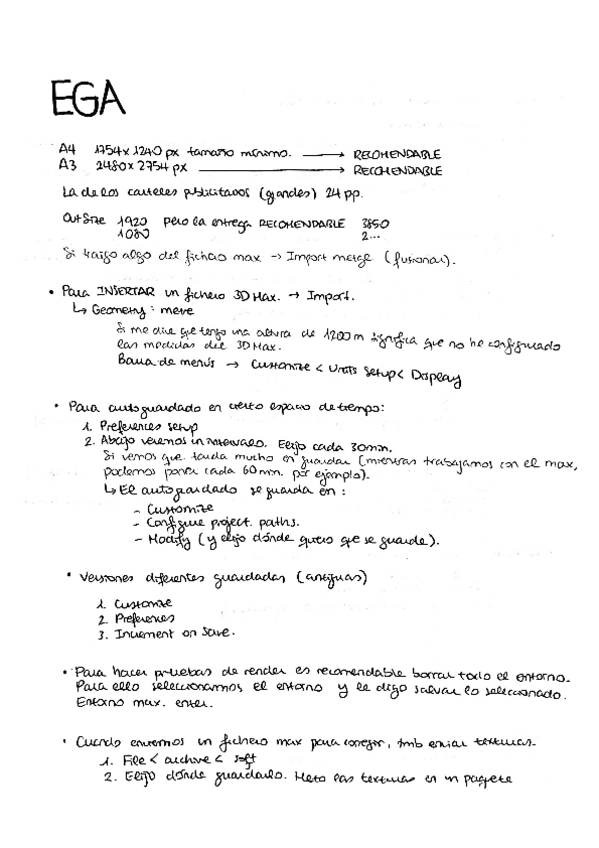 EGA
A4 1754x1240 px tamaño mínimo. → RECOMENDABLE
A3 2480x2754 px → RECOMENDABLE
La de los carteles publicitarios (grandes) 24 pp.
Out Size 1920 pero la entrega RECOMENDABLE 3850
1080 2...
Si traigo algo del fichero max → Import merge (fusionar).
• Para INSERTAR un fichero 3D Max. → Import.
↳ Geometry: merge
Si me dice que tengo una altura de 1200 m significa que no he configurado
las medidas del 3D Max.
Barra de menús → Customize < Units Setup < Display
• Para autoguardado en cierto espacio de tiempo:
1. Preferences setup
2. Abajo veremos un intervalo. Elijo cada 30min.
Si vemos que tarda mucho en guardar (mientras trabajamos con el max,
podemos poner cada 60min. por ejemplo).
↳ El autoguardado se guarda en:
- Customize
- Configure project paths.
- Modify (y elijo dónde quiero que se guarde).
• Versiones diferentes guardadas (antiguas)
1. Customize
2. Preferences
3. Increment on Save.
• Para hacer pruebas de render es recomendable borrar todo el entorno.
Para ello seleccionamos el entorno y le digo salvar lo seleccionado.
Entorno max. enter.
• Cuando enviemos un fichero max para corregir, tmb enviar texturas.
1. File < archive <
2. Elijo dónde guardarlo. Meto las texturas en un paquete